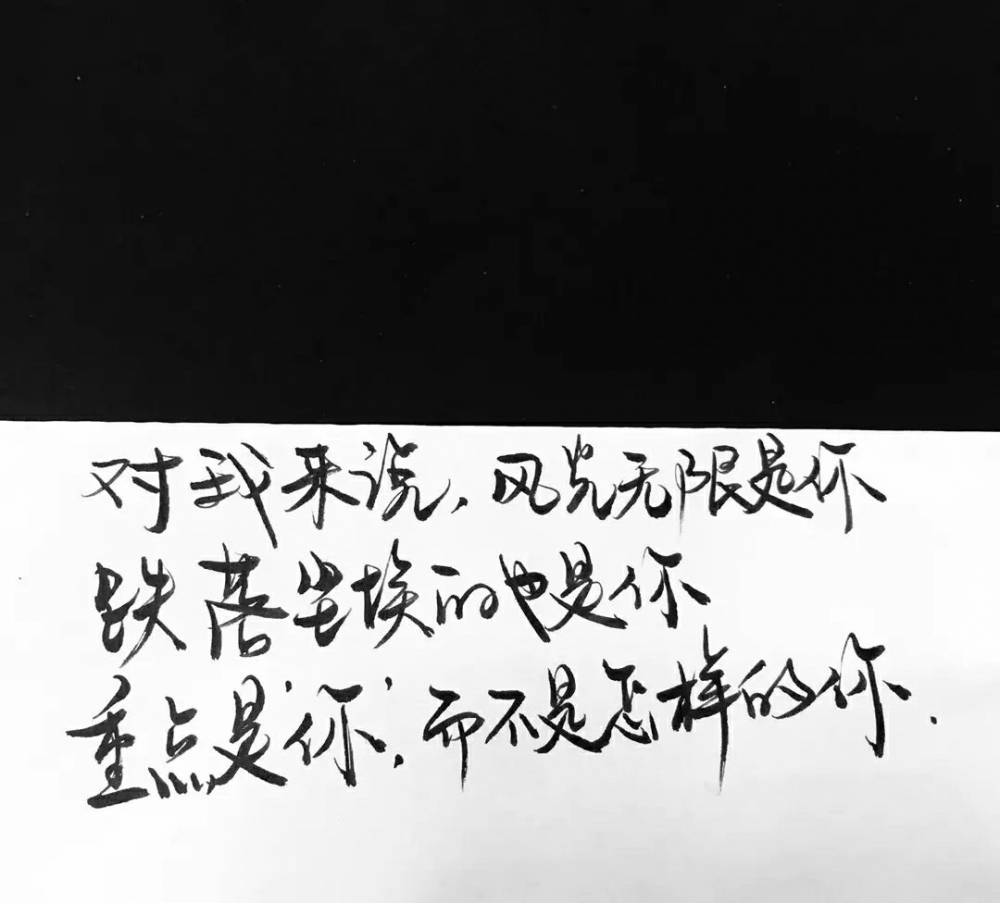 对我来说，风光无限是你
跌落尘埃的也是你
重点是‘你’，而不是怎样的你．